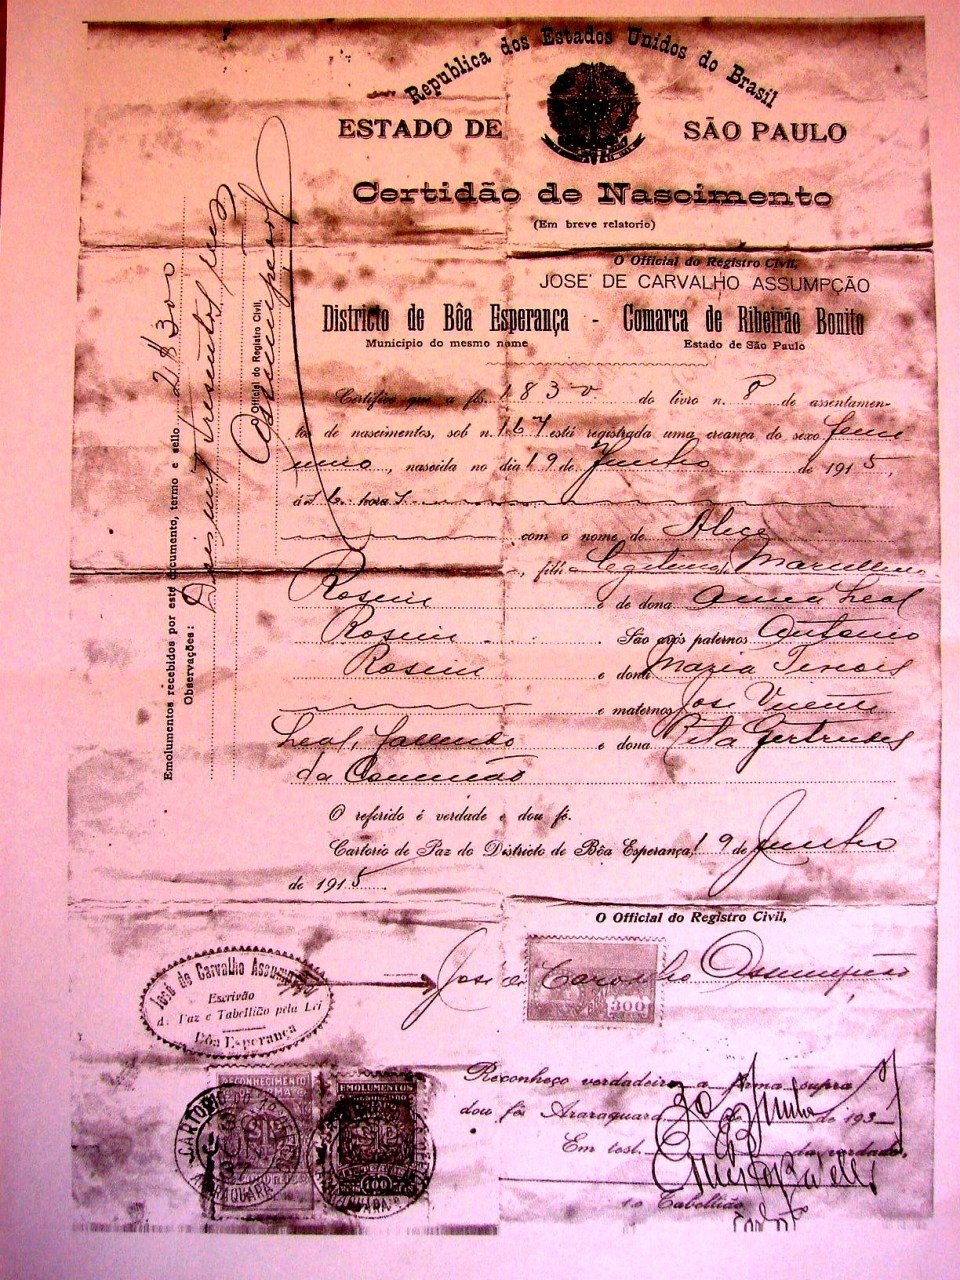 Republica dos Estados Unidos do Brasil
ESTADO DE SÃO PAULO
Certidão de Nascimento
(Em breve relatorio)
O Official do Registro Civil,
JOSE' DE CARVALHO ASSUMPÇÃO
Districto de Bôa Esperança - Comarca de Ribeirão Bonito
Municipio do mesmo nome Estado de São Paulo
Certifico que a fls. 183 v do livro n. 8 de assentamen-
tos de nascimentos, sob n. 167 está registrada uma creança do sexo femi
nino, nascida no dia 19 de Junho de 1915,
ás horas
com o nome de Alice
, filha legitima, Marcellino
Rosim e de dona Anna Leal
Rosim São avós paternos Antonio
Rosim e dona Maria
e maternos José Vicente
Leal, e dona Rita Gertrudes
da Conceição
O referido é verdade e dou fé.
Cartorio de Paz do Districto de Bôa Esperança, 19 de Junho
de 1915
O Official do Registro Civil,
José de Carvalho Assumpção
300
José de Carvalho Assumpção
Escrivão
d. Paz e Tabellião pela Lei
Bôa Esperança
Reconheço verdadeira a firma supra
dou fé Araraquara 30 de Junho de 193
Em test. da verdade.
o Tabellião
RECONHECIMENTO
FIRMA
EMOLUMENTOS
100
CARTORIO
ARARAQUARA
Emolumentos recebidos por este documento, termo e sello 2$300
Observações: Dois mil tresentos reis
O Official do Registro Civil,
Assumpção